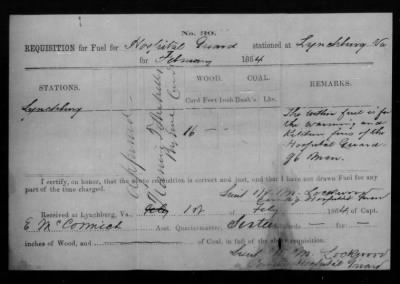 No. 30.
REQUISITION for Fuel for Hospital Guard stationed at Lynchburg Va
for February 1864
STATIONS. WOOD. COAL. REMARKS.
Cord Feet Inch Bush's. Lbs.
Lynchburg 16 — The within fuel is for
the warming and
Kitchen fires of the
Hospital Guard
96 Men.
Approved
I certify, on honor, that the above requisition is correct and just, and that I have not drawn Fuel for any
part of the time charged. Lieut W. M. Lockwood
Hospital Guard
Received at Lynchburg, Va., 1st of Feby 1864, of Capt.
E McCormick Asst. Quartermaster, Sixteen — feet —
inches of Wood, and — of Coal, in full of the above requisition.
Lieut W. M. Lockwood
Hospital Guard